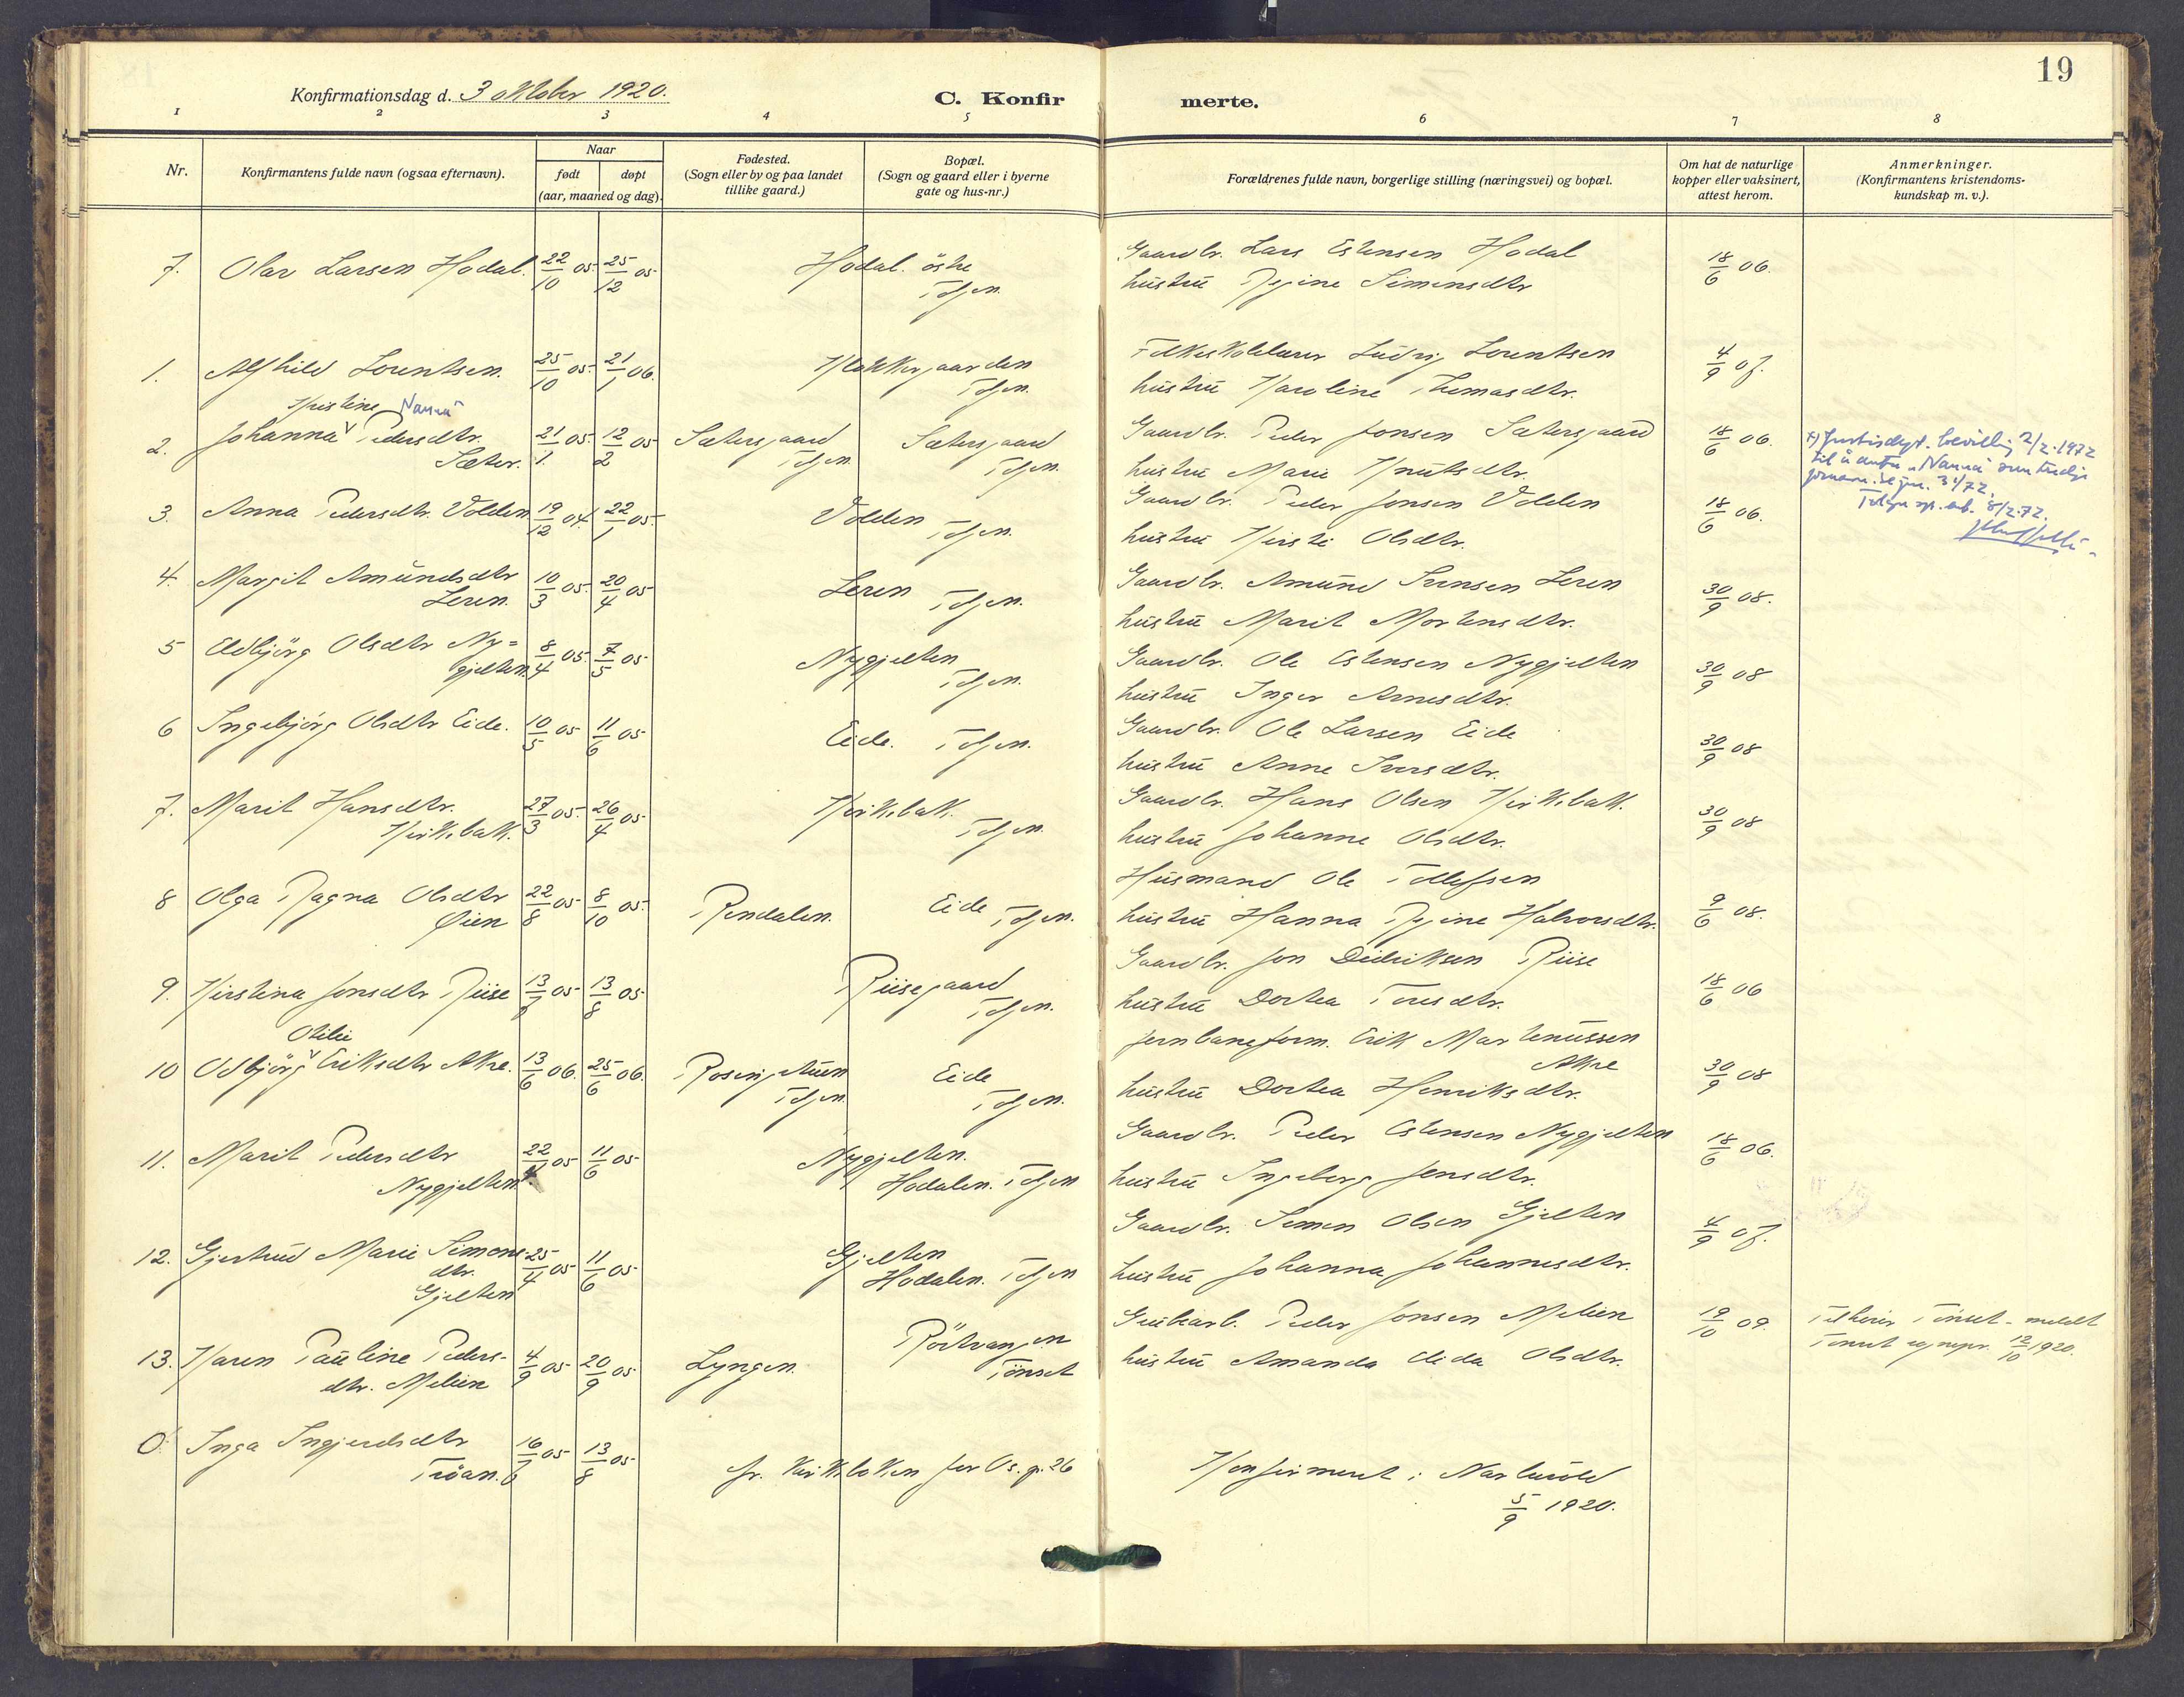 19
Konfirmationsdag d. 3 oktober 1920.
C. Konfirmerte.
1 2 3 4 5 6 7 8
Nr.
Konfirmantens fulde navn (ogsaa efternavn).
Naar
født døpt
(aar, maaned og dag).
Fødested.
(Sogn eller by og paa landet
tillike gaard.)
Bopæl.
(Sogn og gaard eller i byerne
gate og hus-nr.)
Forældrenes fulde navn, borgerlige stilling (næringsvei) og bopæl.
Om hat de naturlige
kopper eller vaksinert,
attest herom.
Anmerkninger.
(Konfirmantens kristendoms-
kundskap m. v.).
7. Olav Larsen Hodal. 22/10 05 25/12 05 Hodal östre Gaardbr. Lars Estensen Hodal 18/6 06.
Tolgen. hustru Regine Simensdtr
1. Alfhild Lorentsen. 25/10 05 21/1 06. Klokkergaarden Folkeskolelærer Ludvig Lorentsen 4/9 07.
Tolgen. hustru Karoline Thomasdtr.
Kristine "Nanna"
2. Johanna Pedersdtr. 21/1 05. 12/2 05 Sætersgaard Sætersgaard Gaardbr. Peder Jonsen Sætersgaard 18/6 06.
Sæter. Tolgen. Tolgen. hustru Marie Knutsdtr.
x) Justisdept. bevillig 2/2.1972
til å anta "Nanna" som tredje
fornavn. Se jnr. 31/72.
Tolga spr. emb. 8/2-72.
3. Anna Pedersdtr. Volden 19/12 04 22/1 05. Volden Tolgen. Gaardbr. Peder Jonsen Volden 18/6 06.
hustru Kirsti Olsdtr.
4. Margit Amundsdtr 10/3 05. 20/4 05 Leren Tolgen. Gaardbr. Amund Svensen Leren 30/9 08.
Leren. hustru Marit Mortensdtr.
5 Eldbjörg Olsdtr Ny= 8/4 05. 7/5 05 Nygjelten Gaardbr. Ole Estensen Nygjelten 30/9 08
gjelten. Tolgen. hustru Inger Arnesdtr.
6 Ingebjörg Olsdtr Eide. 10/5 05 11/6 05 Eide. Tolgen. Gaardbr. Ole Larsen Eide 30/9 08
hustru Anne Iversdtr.
7. Marit Hansdtr. 27/3 05. 26/4 05 Kirkebakk. Gaardbr. Hans Olsen Kirkebakk. 30/9 08
Kirkebakk. Tolgen. hustru Johanne Olsdtr.
8 Olga Ragna Olsdtr 22/8 05 8/10 05. Rendalen. Eide Tolgen. Husmand Ole Tollefsen 9/6 08.
Øien hustru Hanna Regine Halvorsdtr.
9. Kirstina Jonsdtr Riise 13/7 05 13/8 05 Riisegaard Gaardbr. Jon Didriksen Riise 18/6 06
Tolgen. hustru Dortea Toresdtr.
Otilie
10 Oddbjörg Eriksdtr Akre. 13/6 06. 25/6 06. Rosingstuen Eide Jernbaneform. Erik Martinussen 30/9 08
Tolgen. Tolgen. Akre
hustru Dortea Henriksdtr.
11. Marit Pedersdtr 22/4 05 11/6 05 Nygjelten. Gaardbr. Peder Estensen Nygjelten 18/6 06.
Nygjelten. Hodalen. Tolgen hustru Ingeborg Jensdtr.
12. Gjertrud Marie Simens- 25/4 05 11/6 05 Gjelten Gaardbr. Simen Olsen Gjelten 4/9 07.
dtr. Hodalen. Tolgen hustru Johanna Johannesdtr.
Gjelten
13. Karen Pauline Peders- 4/9 05 20/9 05 Lyngen. Rörtvangen Grubearb. Peder Jonsen Melien 19/10 09. Tilhörer Tönset - meldt
dtr. Melien Tönset hustru Amanda Olsdtr. Tönset sognepr. 12/10 1920.
0. Inga Ingjerdsdtr 16/6 05 13/8 05 fr. Kirkeboken for Os. p. 26 Konfirmeret i Narbuvold
Tröan. 5/9 1920.